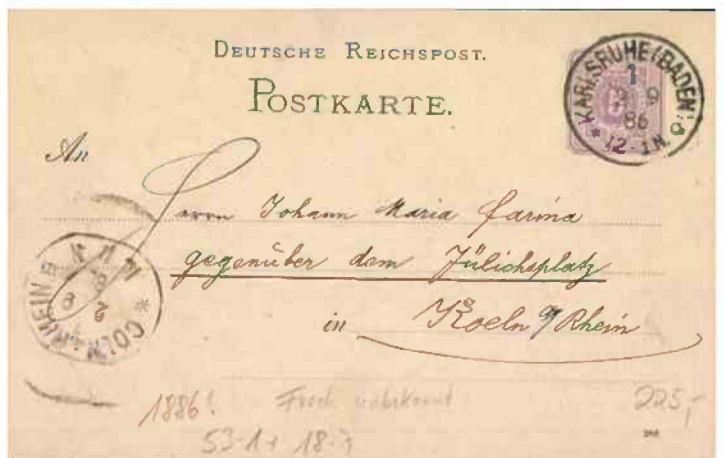 DEUTSCHE REICHSPOST.
POSTKARTE.
KARLSRUHE (BADEN)
1
9 9
86
* 12-1N.
An
Herrn Johann Maria Farina
gegenüber dem Jülichsplatz
in Koeln a/Rhein
CÖLN RHEIN *
1886!
unbekannt
225,-
53-1+ 18-